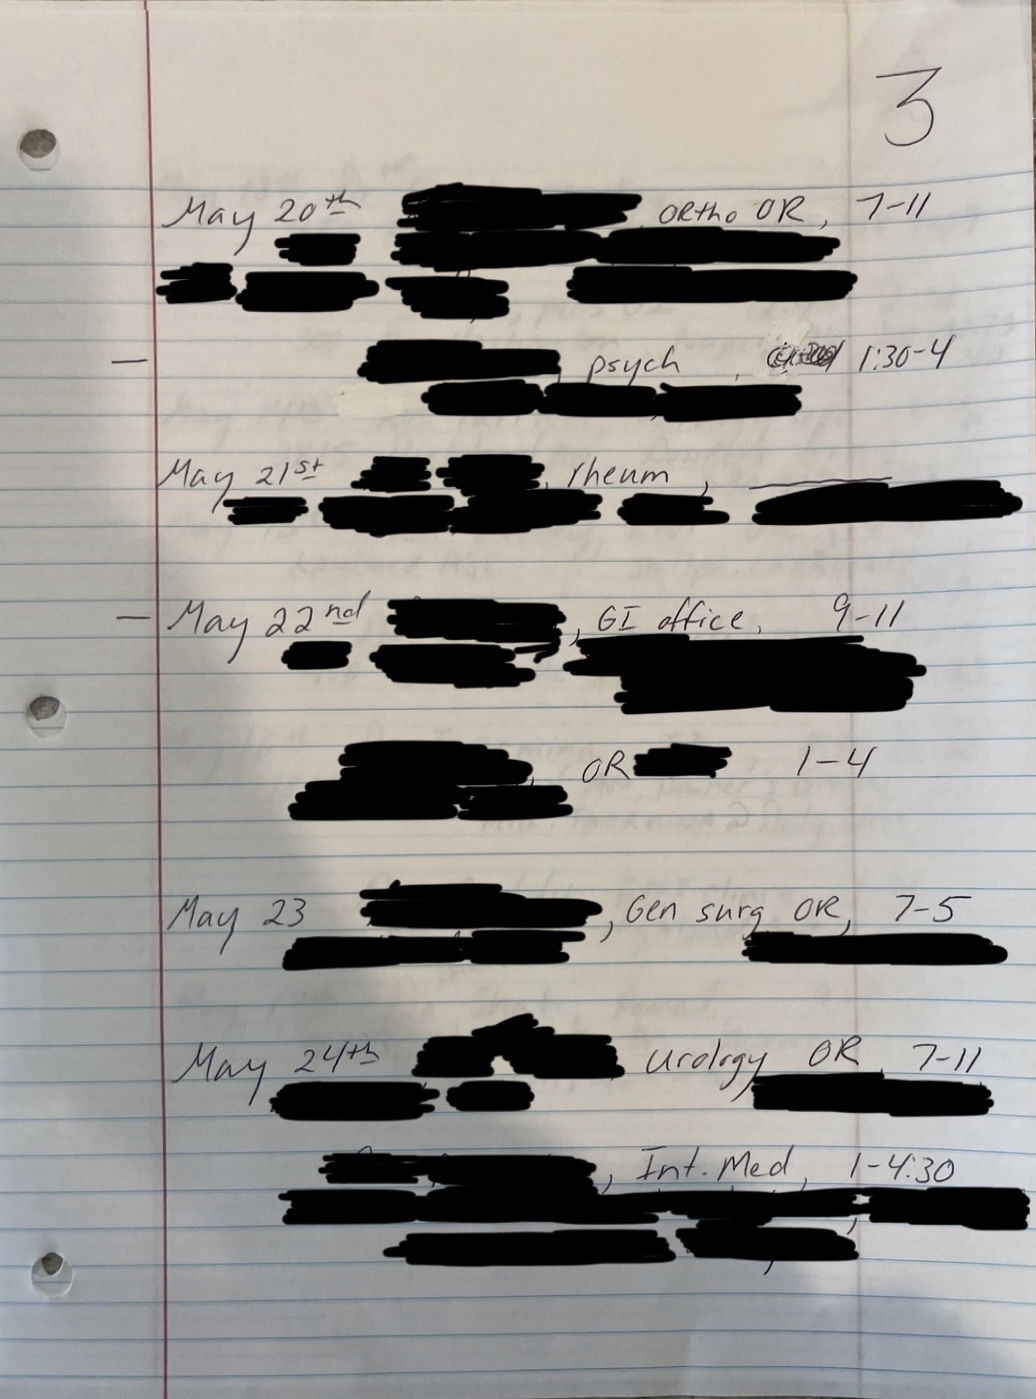 3
May 20th ORtho OR, 7-11
psych, 1:30-4
May 21st, rheum,
May 22nd, GI office, 9-11
, OR 1-4
May 23, Gen surg OR, 7-5
May 24th urology OR 7-11
, Int. Med, 1-4:30